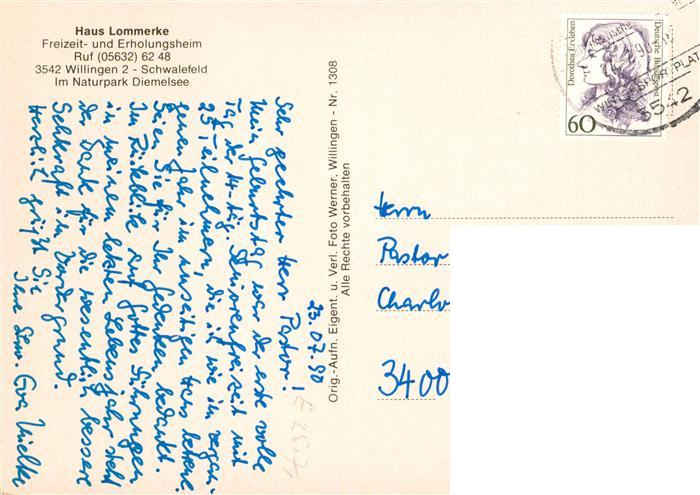 Haus Lommerke
Freizeit- und Erholungsheim
Ruf (05632) 62 48
3542 Willingen 2 - Schwalefeld
Im Naturpark Diemelsee
23.07.90
Sehr geehrter Herr Pastor!
Mein Geburtstag war der erste volle
Tag der 14-täg. Seniorenfreizeit mit
25 Teilnehmern, die ich wie im vergan-
genen Jahr im hiesigen Haus betreue.
Seien Sie für Ihr Gedenken bedankt.
Im Rückblick auf Gottes Führungen
in meinem letzten Lebensjahr steht
der Dank für die wesentlich bessere
Sehkraft im Vordergrund.
Herzlich grüßt Sie
Ihre Eva
Orig.-Aufn. Eigent. u. Verl. Foto Werner, Willingen - Nr. 1308
Alle Rechte vorbehalten
Dorothea Erxleben
Deutsche Bundespost
60
3542
Herrn
Pastor
Charlo
3400